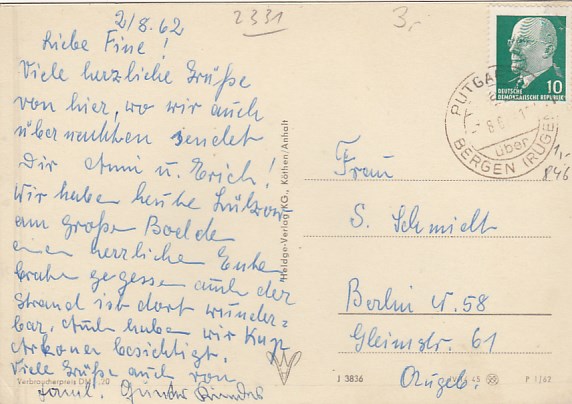 2/8.62
2331
3,-
Liebe Fine!
Viele herzliche Grüße
von hier, wo wir auch
übernachten sendet
Dir Anni u. Erich!
Wir haben heute
am große Bodde
einen herzlichen Enten
braten gegessen auch der
Strand ist dort wunder=
bar. Auch haben wir Kap
Arkona besichtigt.
Viele Grüße auch von
Faml. Günter
Verbraucherpreis DM 0,20
Heldge-Verlag KG., Köthen/Anhalt
10
DEUTSCHE
DEMOKRATISCHE REPUBLIK
PUTGAR
über
BERGEN (RÜGEN)
1,-
846
Frau
S. Schmidt
Berlin N. 58
Gleimstr. 61
J 3836
IV/14 45
P 1/62